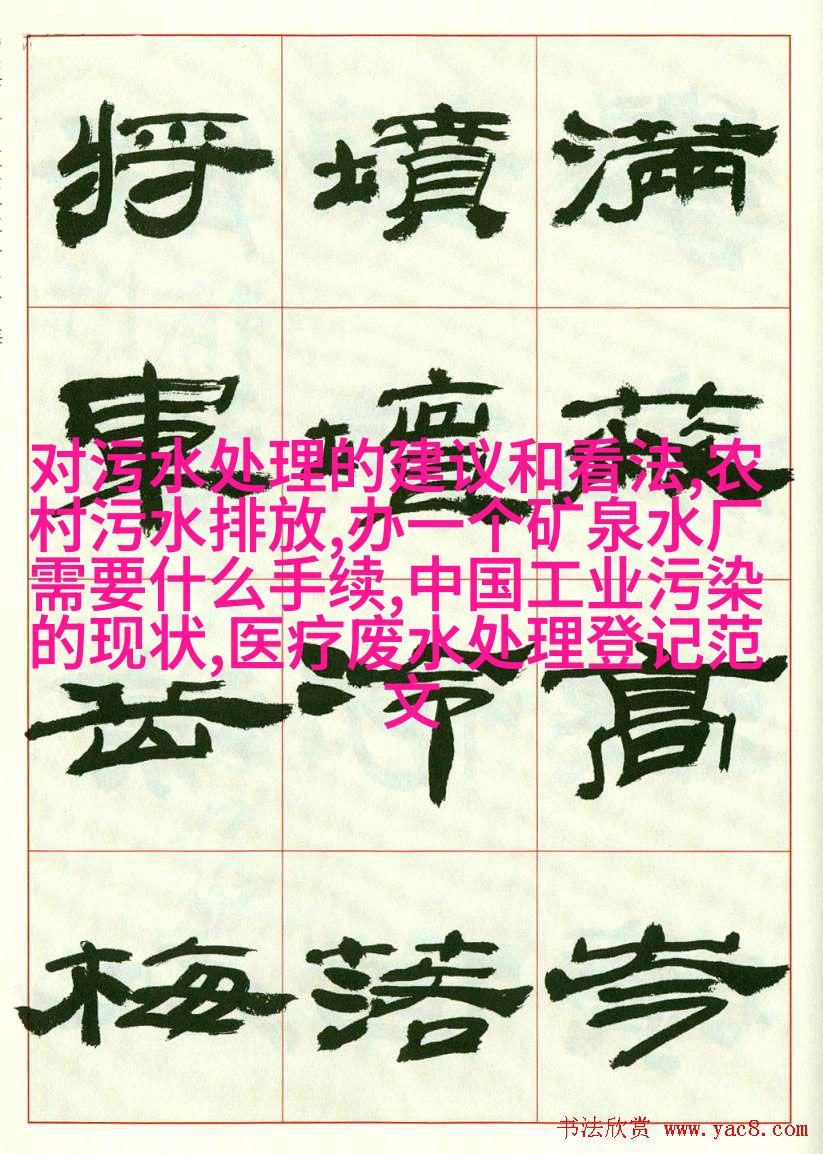 满蔽高岑
墳壇冷落
将軍岳梅
对污水处理的建议和看法,农
村污水排放,办一个矿泉水厂
需要什么手续,中国工业污染
的现状,医疗废水处理登记范
文
书法欣赏 www.yac8.com